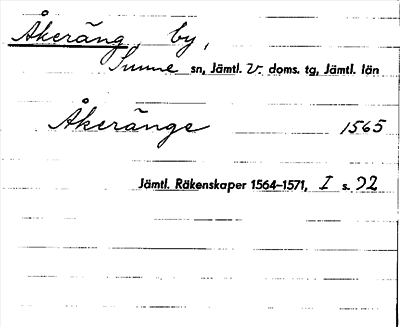 Åkeräng, by,
Sunne sn, Jämtl. v. doms. tg, Jämtl. län
Åkeränge 1565
Jämtl. Räkenskaper 1564–1571, I s. 92